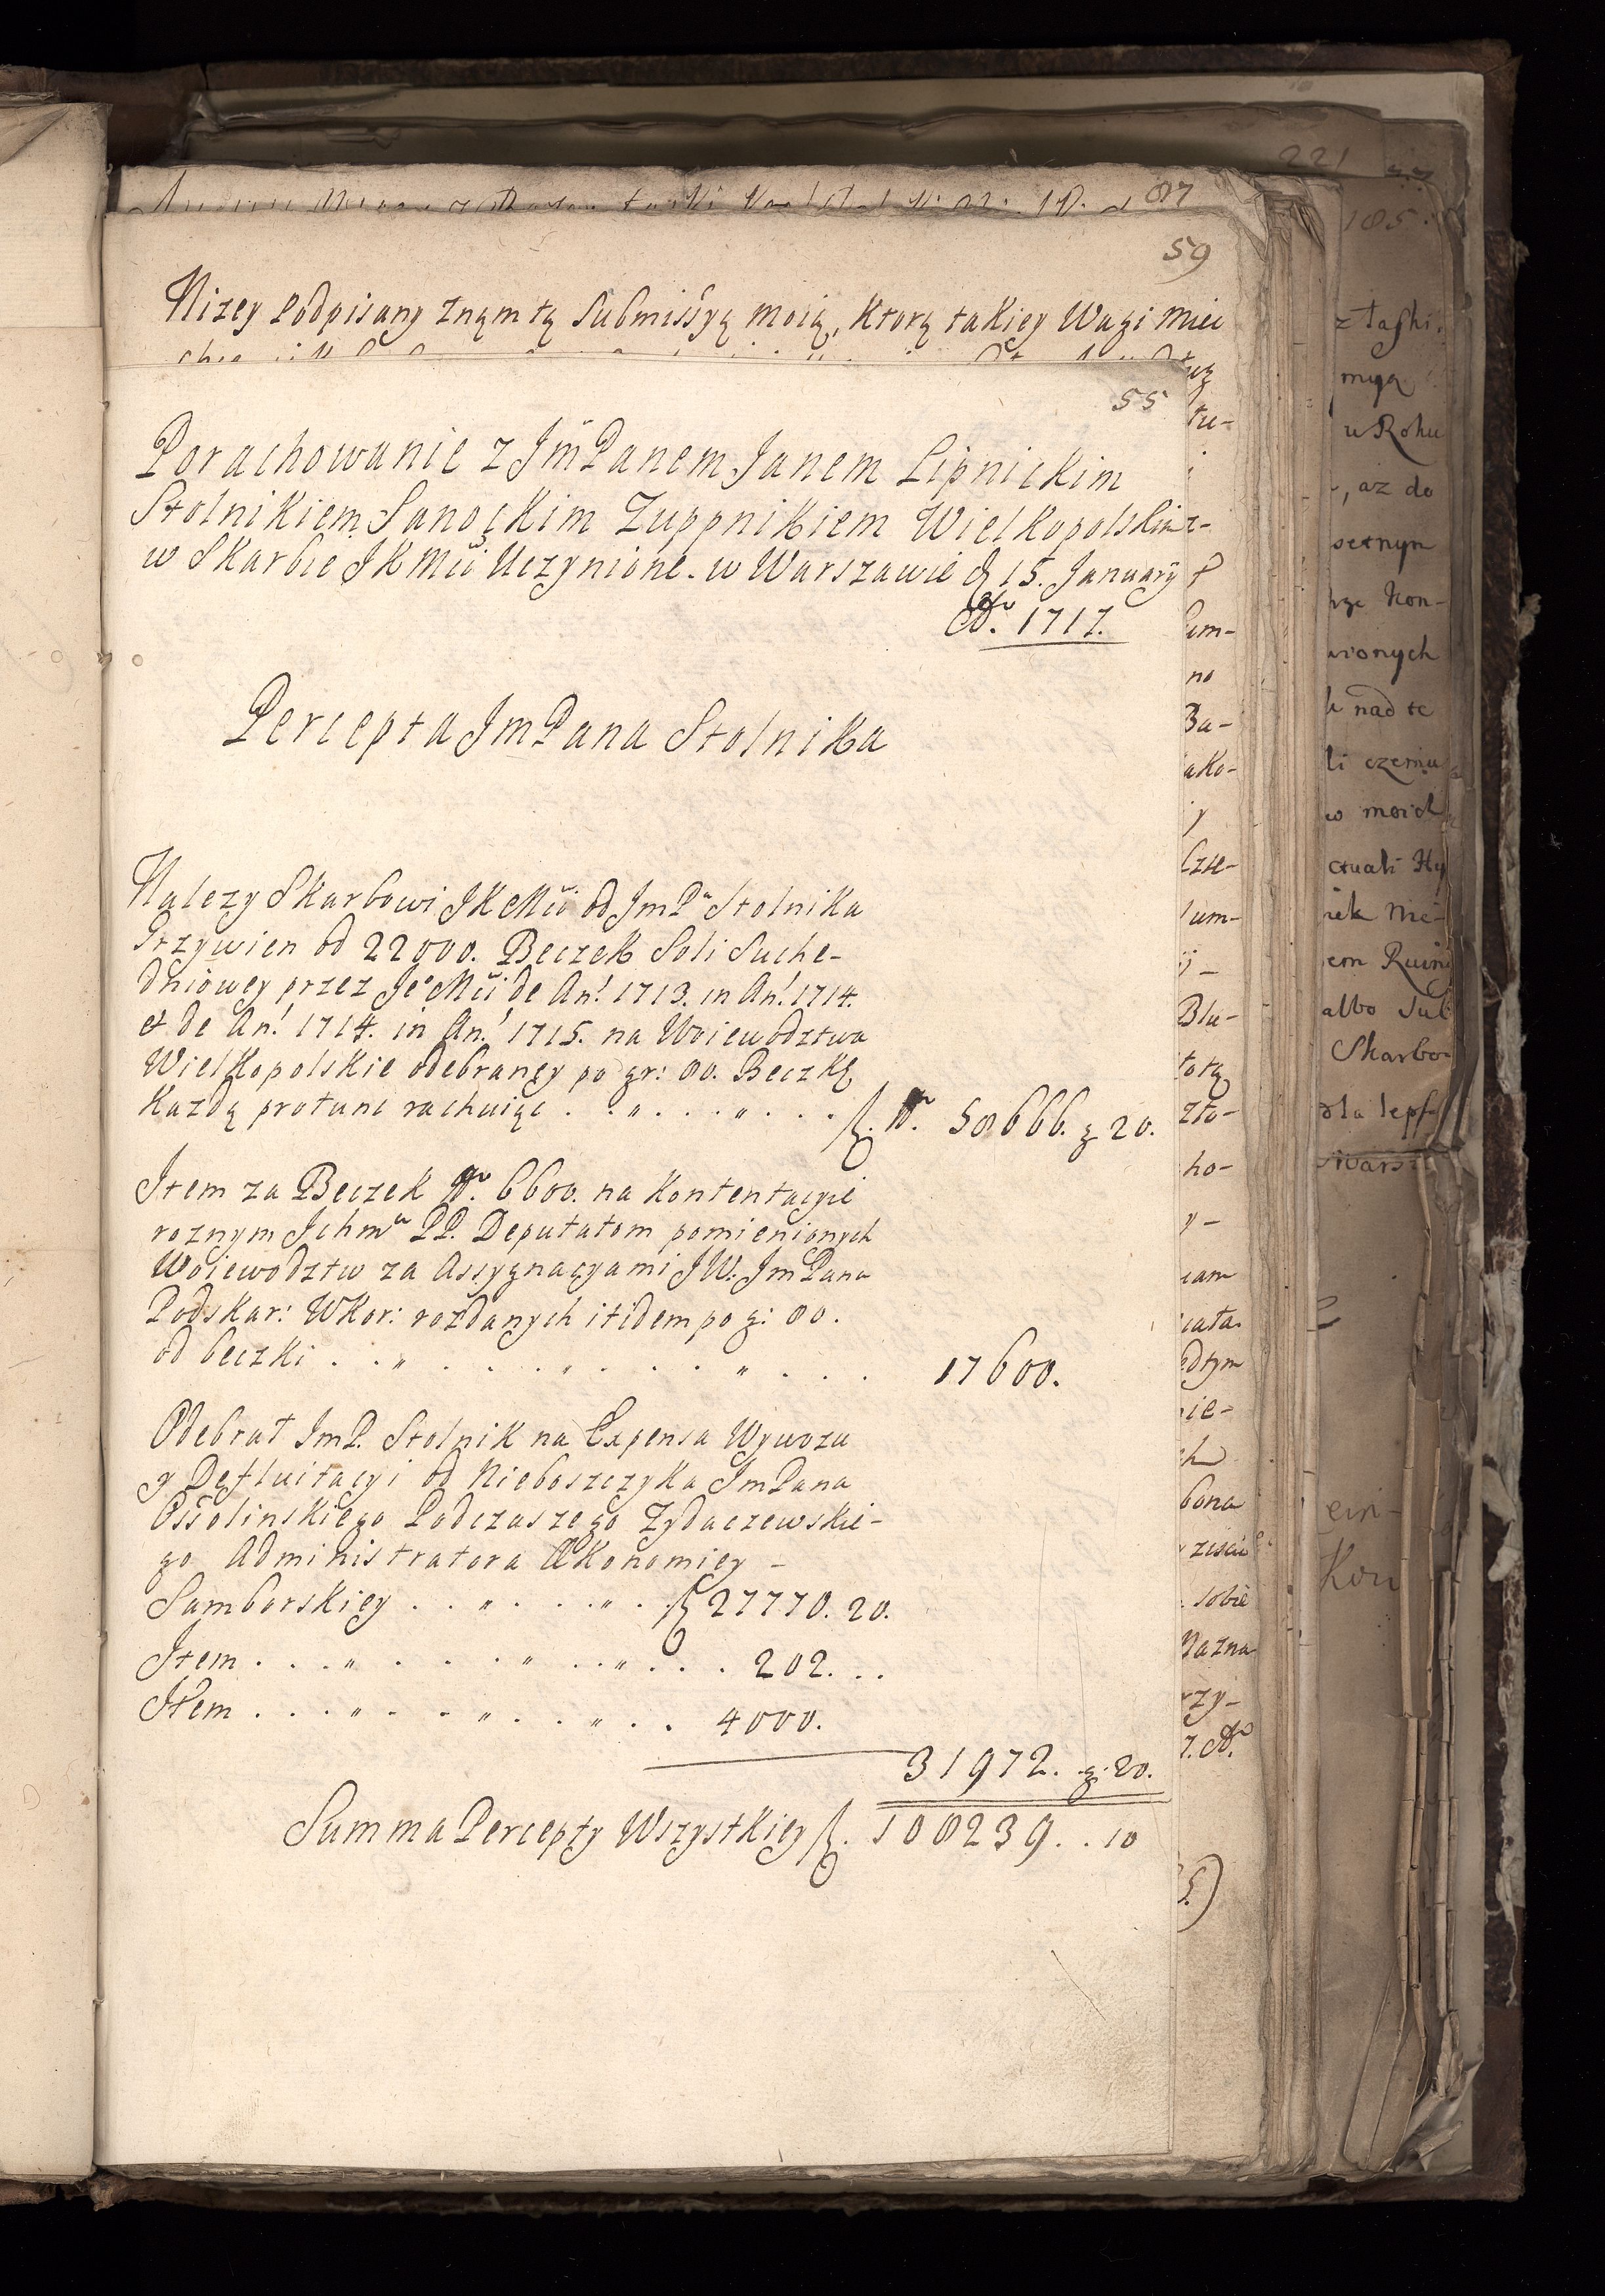 221
185
87
59
Nizey Podpisany Znam tą Submissyą moią, Ktorą takiey Wagi mieć
55
Porachowanie z JmPanem Janem Lipnickim
Stolnikiem Sanockim Zuppnikiem Wielkopolskim
w Skarbie JKMći Uczynione. w Warszawie d. 15. January
Ao. 1717.
Percepta JmPana Stolnika
Nalezy Skarbowi JKMći od JmPa Stolnika
Przywien od 22000. Beczek Soli Suche-
dniowey przez JeoMći de An! 1713. in An! 1714.
et de An! 1714. in An! 1715. na Woiewodztwa
Wielkopolskie odebraney po gr: 80. Beczkę
Kazdą pro tunc rachuiąc . . „ . . . „ . . . . f. No. 58666. g 20.
Item za Beczek No. 6600. na Kontentacyie
roznym Ichmć PP. Deputatom pomienionych
Woiewodztw za Assygnacyami JW. JmPana
Podskar: WKor: rozdanych itidem po g: 80.
od beczki . . „ . . . „ . . . „ . . . 17600.
Odebrał JmP. Stolnik na Expensa Wywozu
y Defluitacyi od Nieboszczyka JmPana
Ossolinskiego Podczaszego Zydaczewskie-
go Administratora Ækonomiey -
Samborskiey . . „ . . . „ . . f 27770. 20.
Item . . . „ . . . „ . . „ . . . 202. . .
Item . . . „ . . „ . . „ . . 4000.
31972. g. 20.
Summa Percepty Wszystkiey f. 108239. . 10
tu-
no
Ba-
iako-
y
Czte-
Blu-
zło-
ho-
y -
ziście
sobie
Wazna
rzy-
z łaski
u Roku
, az do
nad te
li czemu
w moich
albo
Skarbo-
dla lepſ